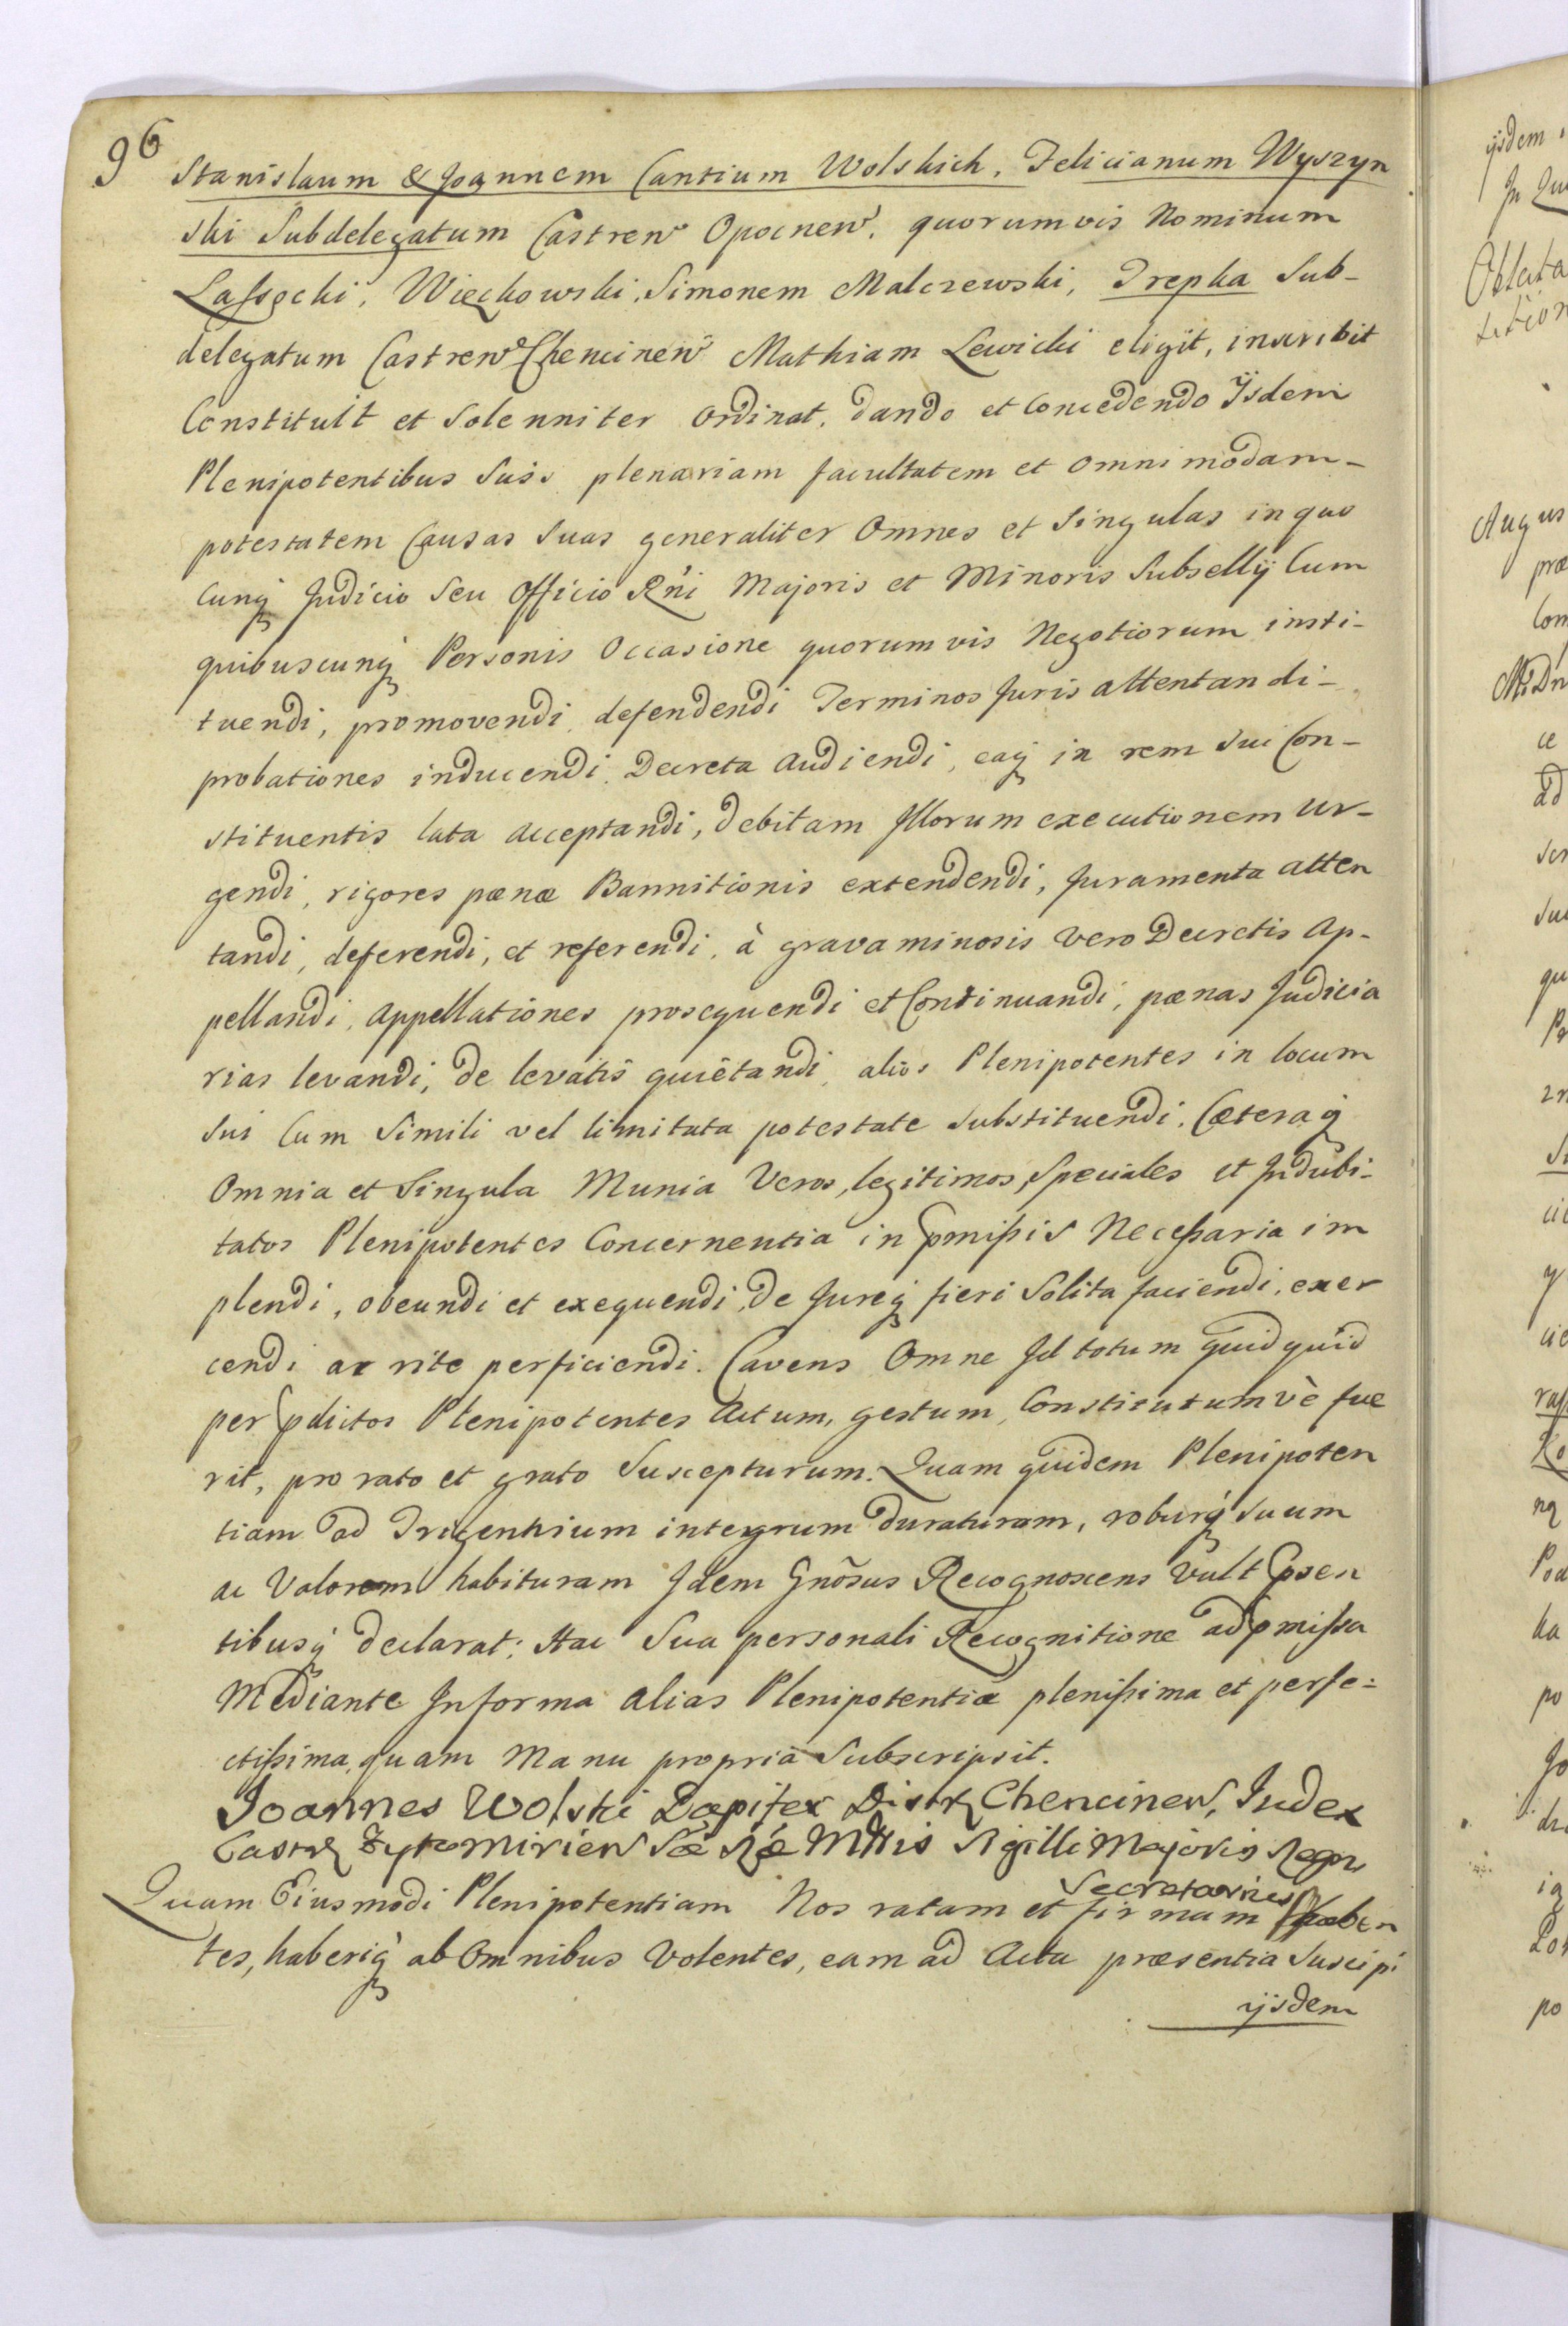 96
Stanislaum & Joannem Cantium Wolskich, Felicianum Wyszyn
ski Subdelegatum Castren Opocnen, quorumvis Nominum
Lassocki, Więckowski, Simonem Malczewski, Trepka Sub-
delegatum Castren Chencinen Mathiam Lewicki eligit, inscribit
Constituit et Solenniter Ordinat, dando et Concedendo Ijsdem
Plenipotentibus Suis plenariam facultatem et omnimodam-
potestatem Causas Suas generaliter Omnes et Singulas in quo
cunq Judicio Seu Officio Rni Majoris et Minoris Subsellij Cum
quibuscunq Personis Occasione quorumvis Negotiorum insti-
tuendi, promovendi, defendendi Terminos Juris attentandi-
probationes inducendi, Decreta Audiendi, eaq in rem Sui Con-
stituentis lata acceptandi, debitam Illorum executionem Ur-
gendi, rigores pœnæ Bannitionis extendendi, Juramenta atten
tandi, deferendi, et referendi, à gravaminosis vero Decretis Ap-
pellandi, Appellationes prosequendi et Continuandi, pœnas Judicia
rias levandi, de levatis quietandi, alios Plenipotentes in locum
Sui Cum Simili vel limitata potestate Substituendi, Cæteraq
Omnia et Singula Munia Veros, legitimos, Speciales et Indubi-
tatos Plenipotentes Concernentia in pmissis Necessaria im
plendi, obeundi et exequendi, de Jureq fieri Solita faciendi, exer
cendi ac rite perficiendi. Cavens Omne Id totum quidquid
per pdictos Plenipotentes Actum, gestum, Constitutumvè fue
rit, pro rato et grato Suscepturum. Quam quidem Plenipoten
tiam ad Trigentium integrum duraturam, roburq Suum
ac Valorem habituram Idem Gnõsus Recognoscens vult psen
tibusq declarat: Hac Sua personali Recognitione ad pmissa
Mediante Informa alias Plenipotentiæ plenissima et perfe=
ctissima, quam Manu propria Subscripsit.
Joannes Wolski Dapifer Distr Chencinen, Judex
Castr Zytomirien Sæ Ræ Mttis Sigilli Majoris Regni
Secretarius
Quam Eiusmodi Plenipotentiam Nos ratam et firmam haben
tes, haberiq ab Omnibus Volentes, eam ad Acta præsentia Suscipi
ijsdem
ijsdem
Oblata
Augus
præ
Com
ce
ad
qu
y
na
po
ia
po